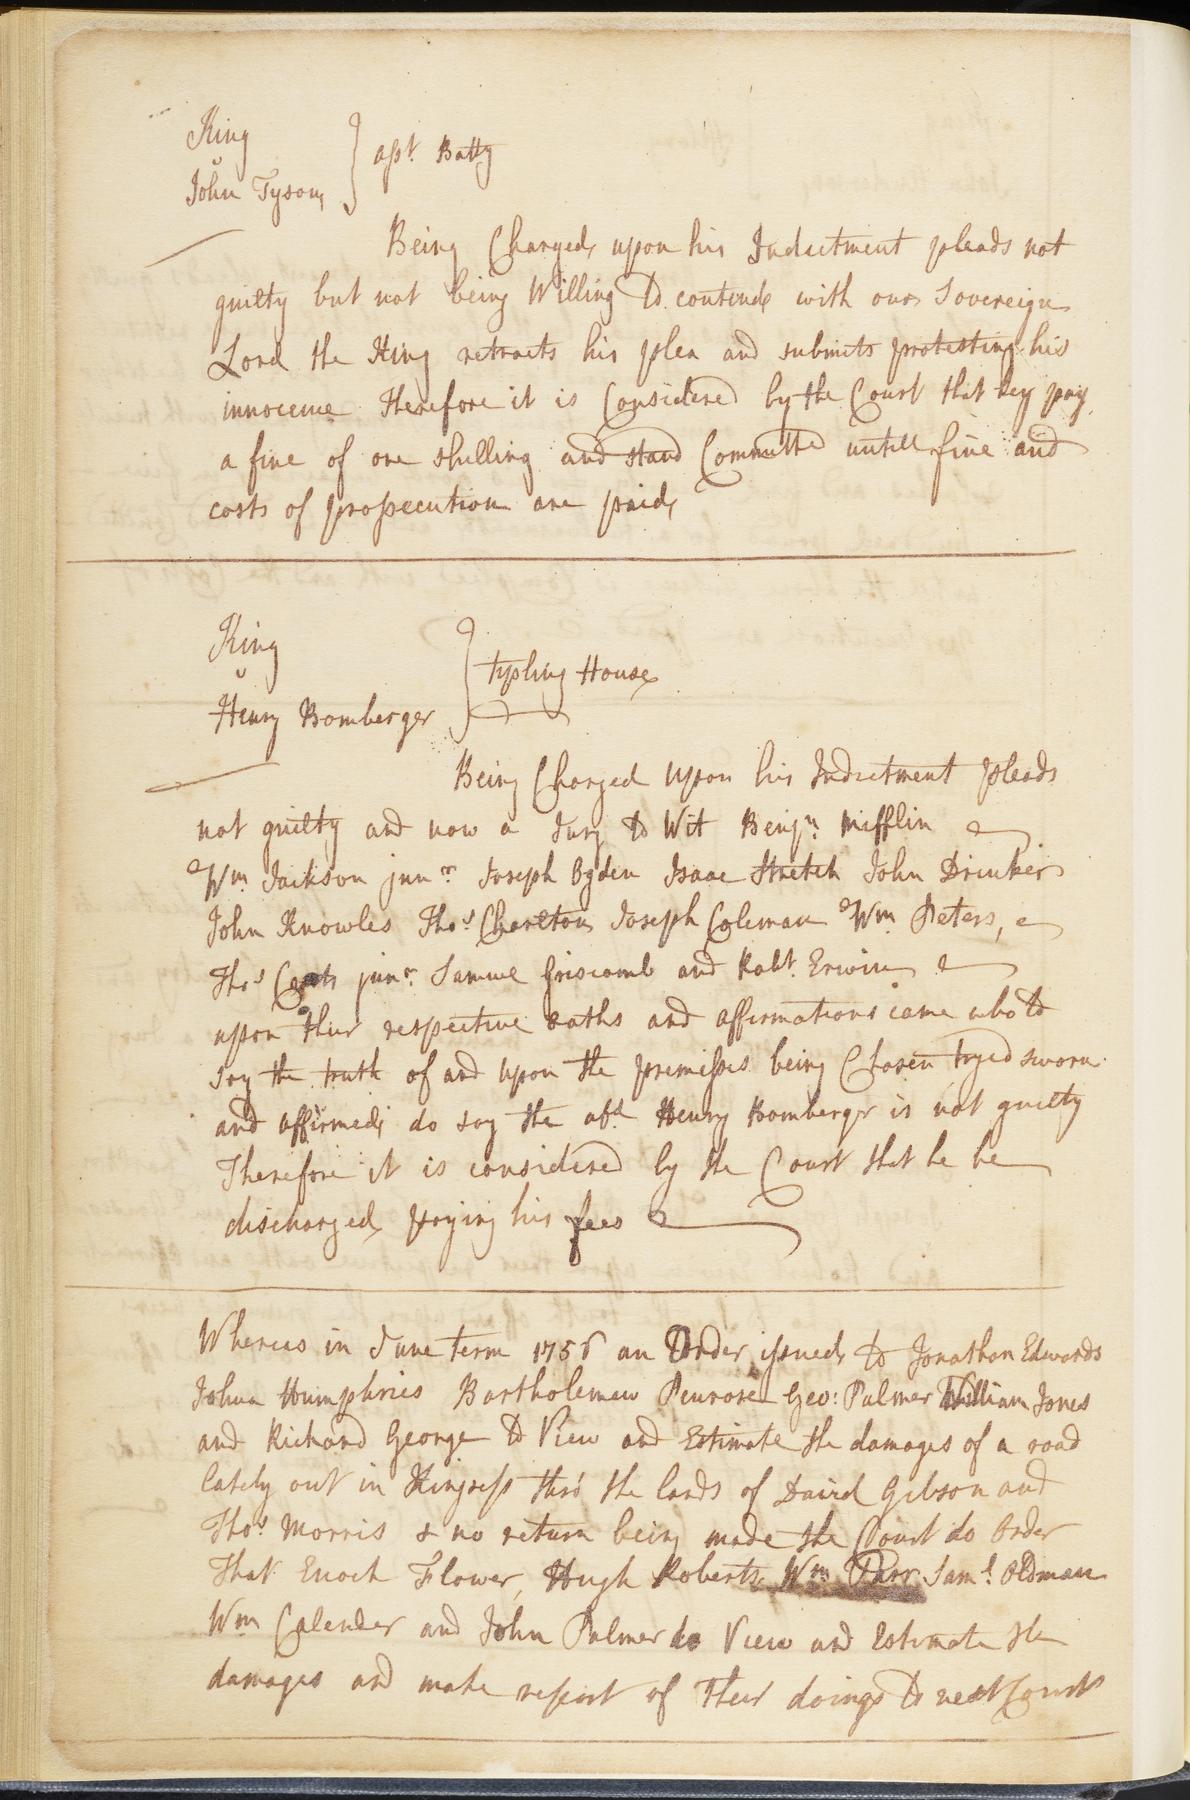 King
v
John Tyson
} asst. Batty
Being Charged upon his Indictment pleads not
guilty but not being Willing to contend with our Sovereign
Lord the King retracts his plea and submits protesting his
innocence Therefore it is Considered by the Court that hey pay
a fine of one shilling and stand Committed untill fine and
costs of prosecution are paid,
King
v
Henry Bomberger
} tipling House
Being Charged upon his Indictment pleads
not guilty and now a Jury to Wit Benjn. Mifflin
Wm. Jackson junr. Joseph Ogden Isaac Stretch John Drinker
John Knowles Thos. Charlton Joseph Coleman Wm Peters,
Thos. junr. Samuel Griscomb and Robt. Erwin
upon their respective oaths and affirmations came who to
say the truth of and upon the premisses being Chosen tryed sworn
and affirmed do say the afd. Henry Bomberger is not guilty
Therefore it is considered by the Court that he be
discharged paying his fees
Whereas in June term 1756 an Order issued to Jonathan Edwards
Joshua Humphries Bartholemew Penrose Geo: Palmer William Jones
and Richard George to View and Estimate the damages of a road
lately out in Kingsess thro' the lands of David Gibson and
Thos. Morris & no return being made the Court do Order
That Enoch Flower, Hugh Roberts, Wm Parr Saml. Oldman
Wm Calender and John Palmer do View and Estimate the
damages and make report of Their doings to next Court